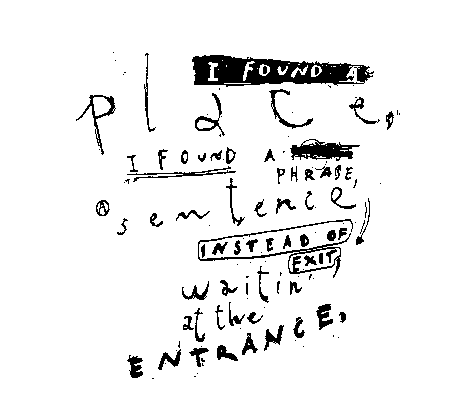 I FOUND A
place,
I FOUND A
PHRASE,
A sentence,
INSTEAD OF
EXIT,
waitin'
at the
ENTRANCE,